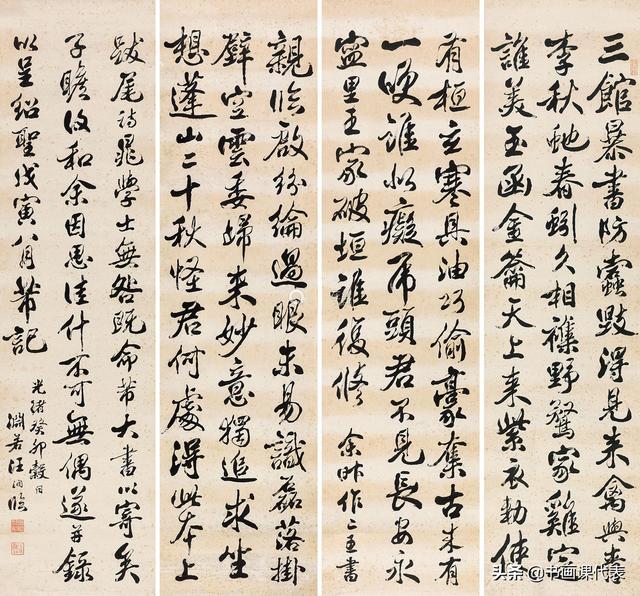 三館暴書防蠹毀得見來禽與青
李秋虵春蚓久相襍野鶩家雞定
誰美玉函金籥天上來紫衣勅使
有桓玄寒具油巧偷豪奪古來有
一咲誰似癡虎頭君不見長安永
寍里王家破垣誰復修 余昨作二王書
親臨啟紛綸過眼未易識磊落掛
壁空雲委歸來妙意獨追求坐
想蓬山二十秋怪君何處得此本上
跋尾詩晁學士無咎既命芾大書以寄矣
子瞻復和余因思佳什不可無偶遂并錄
以呈紹聖戊寅八月芾記
光緒癸卯穀日
淵若汪洵臨
头条 @书画课代表